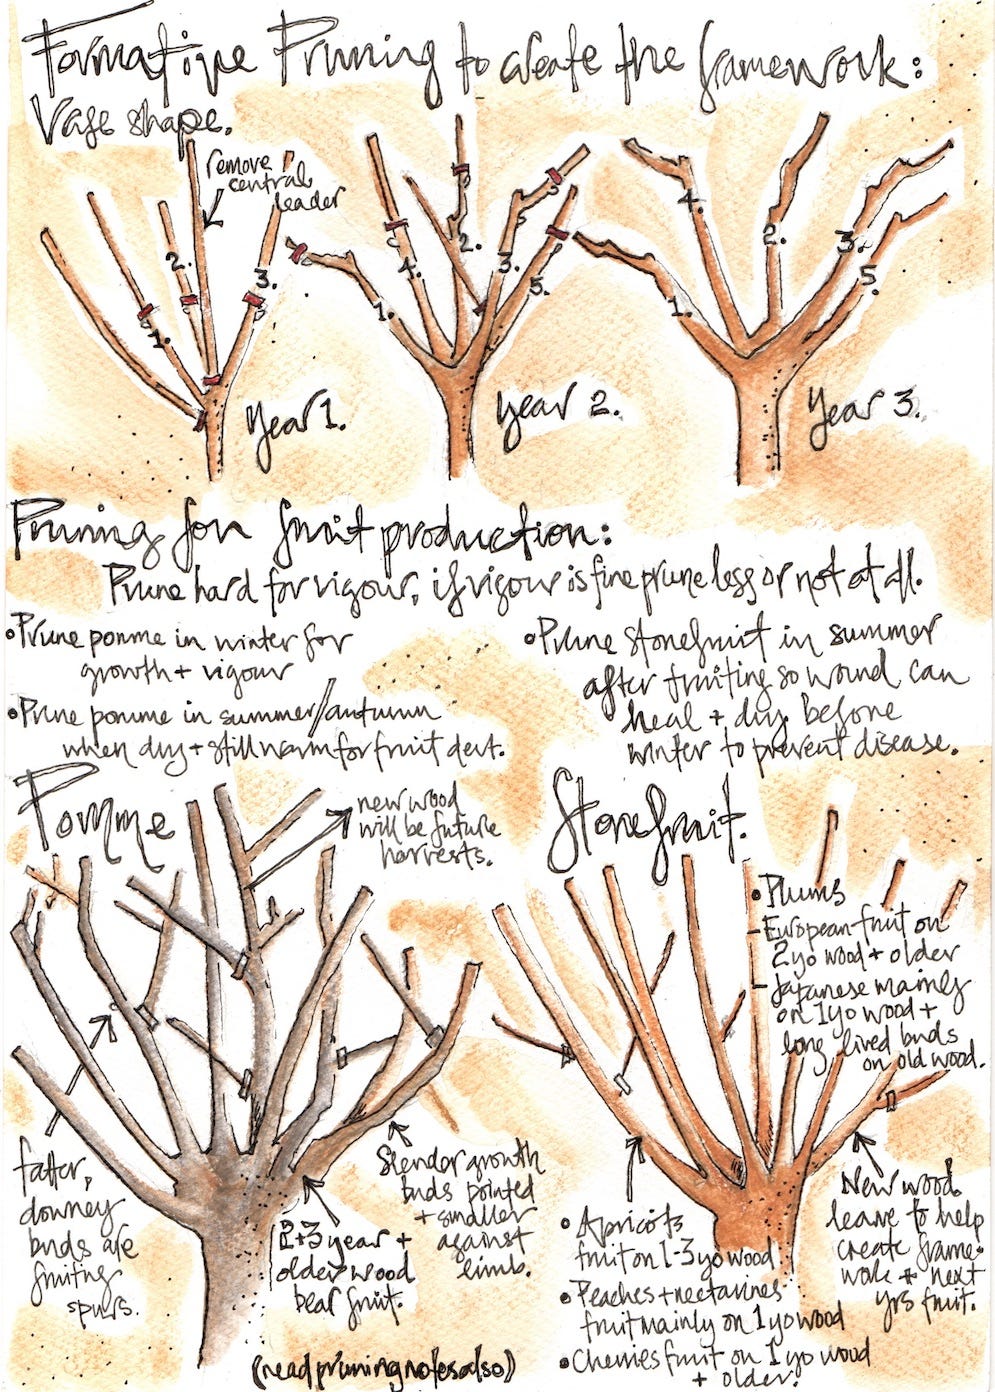 Formative Pruning to create the framework:
Vase shape.
remove
central
leader
1.
2.
3.
Year 1.
1.
4.
2.
3.
5.
Year 2.
1.
4.
2.
3.
5.
Year 3.
Pruning for fruit production:
Prune hard for vigour, if vigour is fine prune less or not at all.
• Prune pomme in winter for
growth + vigour
• Prune pomme in summer/autumn
when dry + still warm for fruit devt.
• Prune stonefruit in summer
after fruiting so wound can
heal + dry before
winter to prevent disease.
Pomme
new wood
will be future
harvests.
fatter,
downey
buds are
fruiting
spurs.
2+3 year +
older wood
bear fruit.
Slender growth
buds pointed
+ smaller
against
limb.
(read pruning notes also)
Stonefruit.
• Plums
- European fruit on
2 yo wood + older
- Japanese mainly
on 1 yo wood +
long lived buds
on old wood.
• Apricots
fruit on 1-3 yo wood
• Peaches + nectarines
fruit mainly on 1 yo wood
• Cherries fruit on 1 yo wood
+ older.
New wood.
leave to help
create frame-
work + next
yrs fruit.